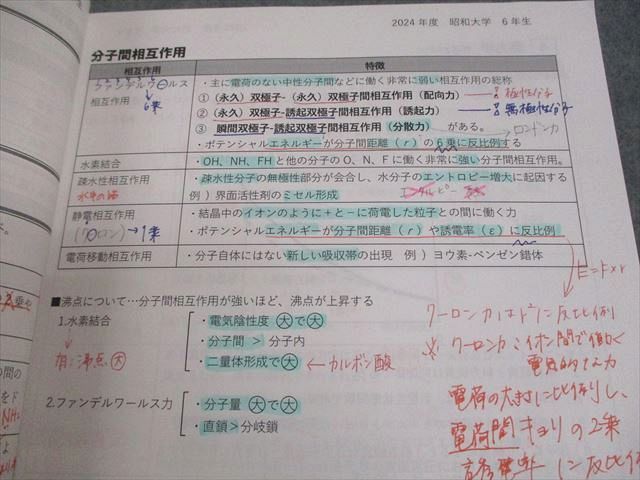 2024 年度 昭和大学 6 年生
分子間相互作用
相互作用 特徴
ファンデルワールス
相互作用
6乗
・主に電荷のない中性分子間などに働く非常に弱い相互作用の総称
①(永久)双極子-(永久)双極子間相互作用(配向力) 極性分子
②(永久)双極子-誘起双極子間相互作用(誘起力) 無極性分子
③ 瞬間双極子-誘起双極子間相互作用(分散力) がある。 ロンドン力
・ポテンシャルエネルギーが分子間距離(r)の 6 乗に反比例する
水素結合 ・OH、NH、FH と他の分子の O、N、F に働く非常に強い分子間相互作用。
疎水性相互作用 ・疎水性分子の無極性部分が会合し、水分子のエントロピー増大に起因する
水中の油 例)界面活性剤のミセル形成
静電相互作用 ・結晶中のイオンのように+と-に荷電した粒子との間に働く力
(クーロン)→1乗 ・ポテンシャルエネルギーが分子間距離(r)や誘電率(ε)に反比例
電荷移動相互作用 ・分子自体にはない新しい吸収帯の出現 例)ヨウ素-ベンゼン錯体
E=F×r
■沸点について…分子間相互作用が強いほど、沸点が上昇する
1.水素結合 ・電気陰性度 大で大
・分子間 > 分子内
・二量体形成で大 ← カルボン酸
沸点 大
2.ファンデルワールス力 ・分子量 大で大
・直鎖>分岐鎖
クーロン力はr²に反比例
※ クーロン力:イオン間で働く
電気的な力
電荷の大きさに比例し、
電荷間キョリの2乗
誘電率に反比例